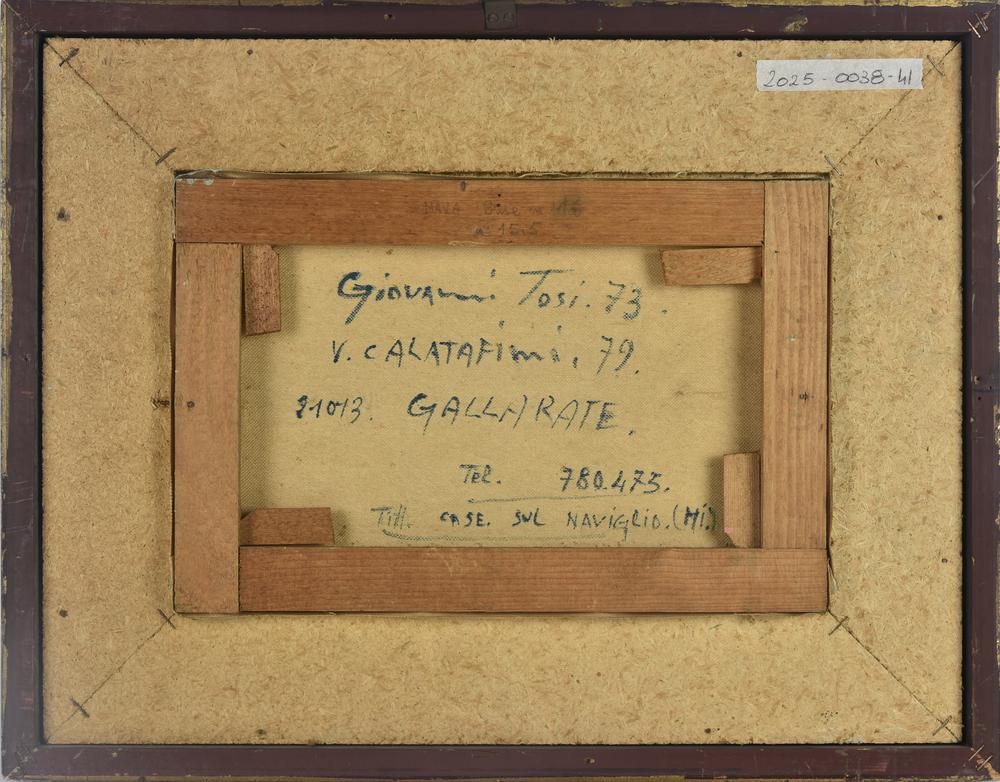 2025-0038-41
Giovanni Tosi. 73.
V. CALATAFimi, 79.
21013. GALLARATE.
Tel. 780.475.
Tit. CASE. SUL NAVIGLIO. (Mi.)